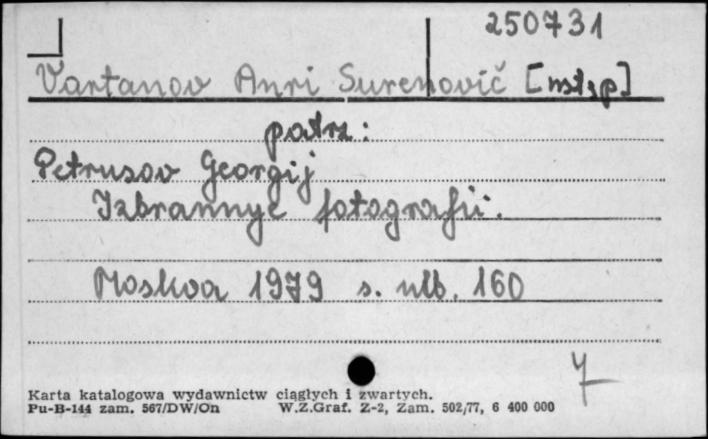 250731
Vartanov Anri Surenovič [wstęp]
patrz:
Petrusov Georgij
Izbrannye fotografii.
Moskva 1979 s. nlb. 160
7
Karta katalogowa wydawnictw ciągłych i zwartych.
Pu-B-144 zam. 567/DW/On W.Z.Graf. Z-2, Zam. 502/77, 6 400 000